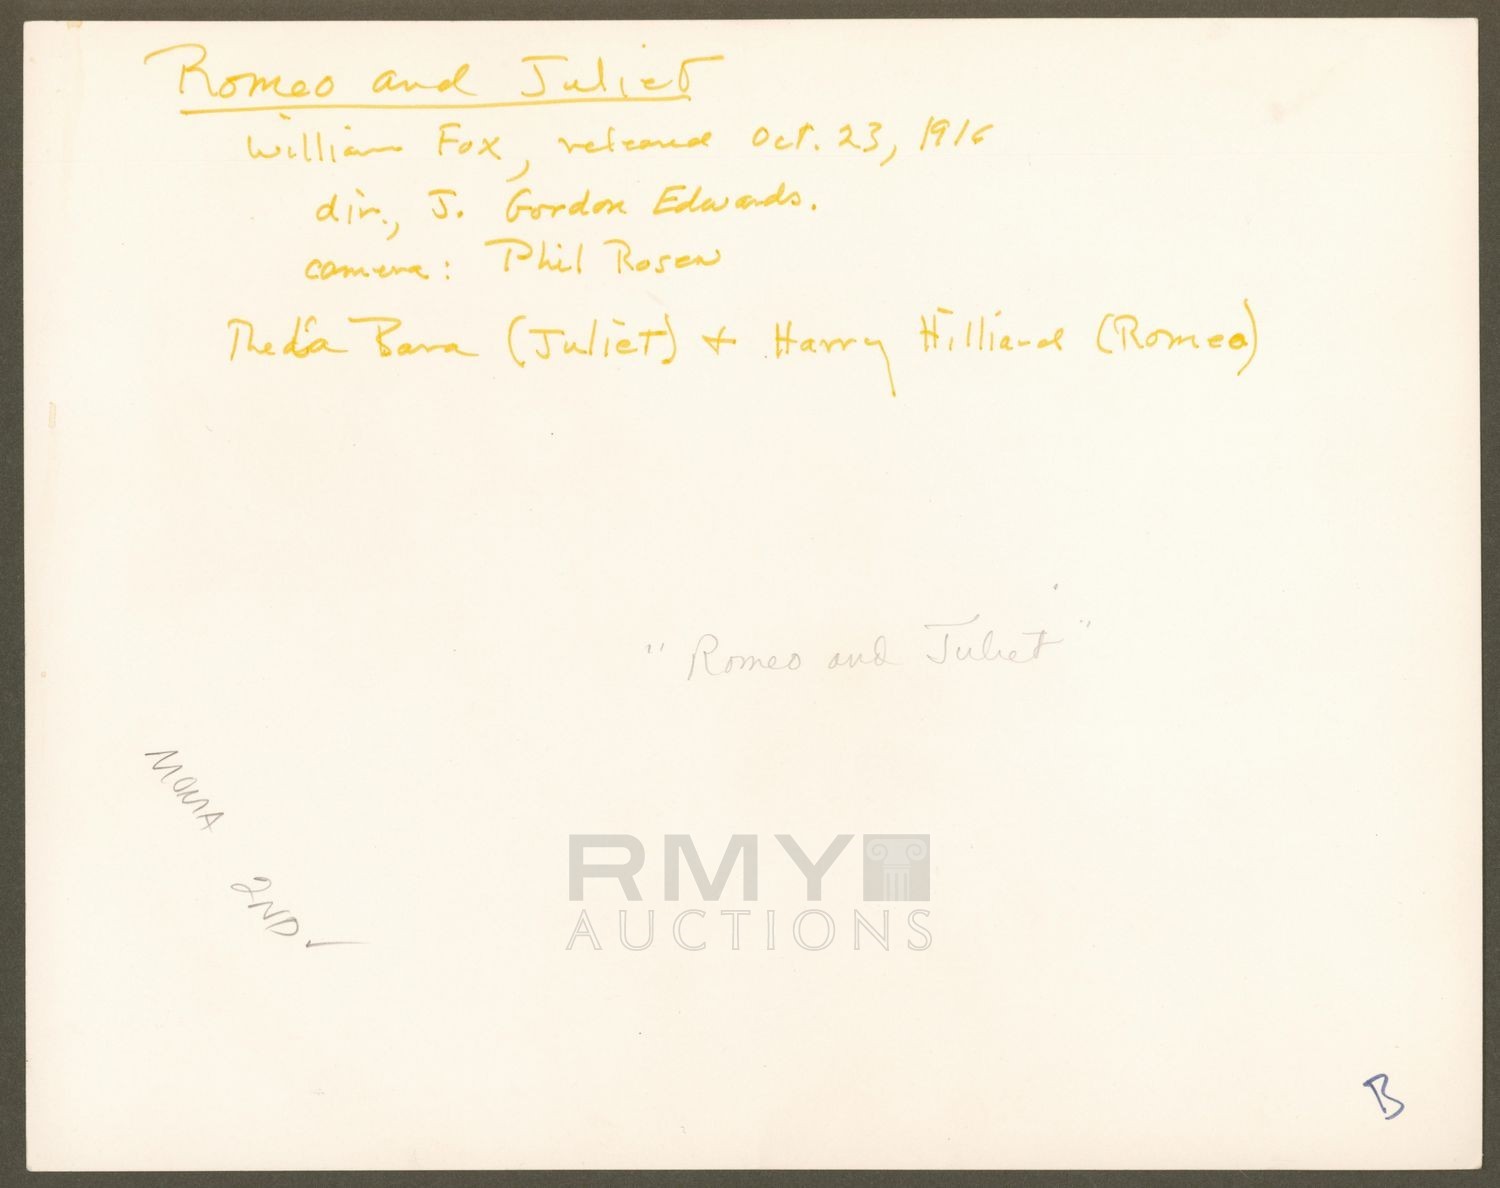 Romeo and Juliet
William Fox, released Oct. 23, 1916
dir., J. Gordon Edwards.
camera: Phil Rosen
Theda Bara (Juliet) + Harry Hilliard (Romeo)
"Romeo and Juliet"
MOMA
2ND
RMY
AUCTIONS
B